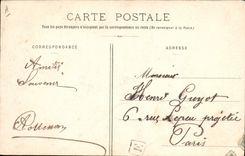 CARTE POSTALE
Tous les pays étrangers n'acceptent pas la correspondance au recto (Se renseigner à la Poste)
CORRESPONDANCE
ADRESSE
Amitié
Souvenir
Monsieur
Henri Guyot
6 rue Lepeu projetée
Paris
E